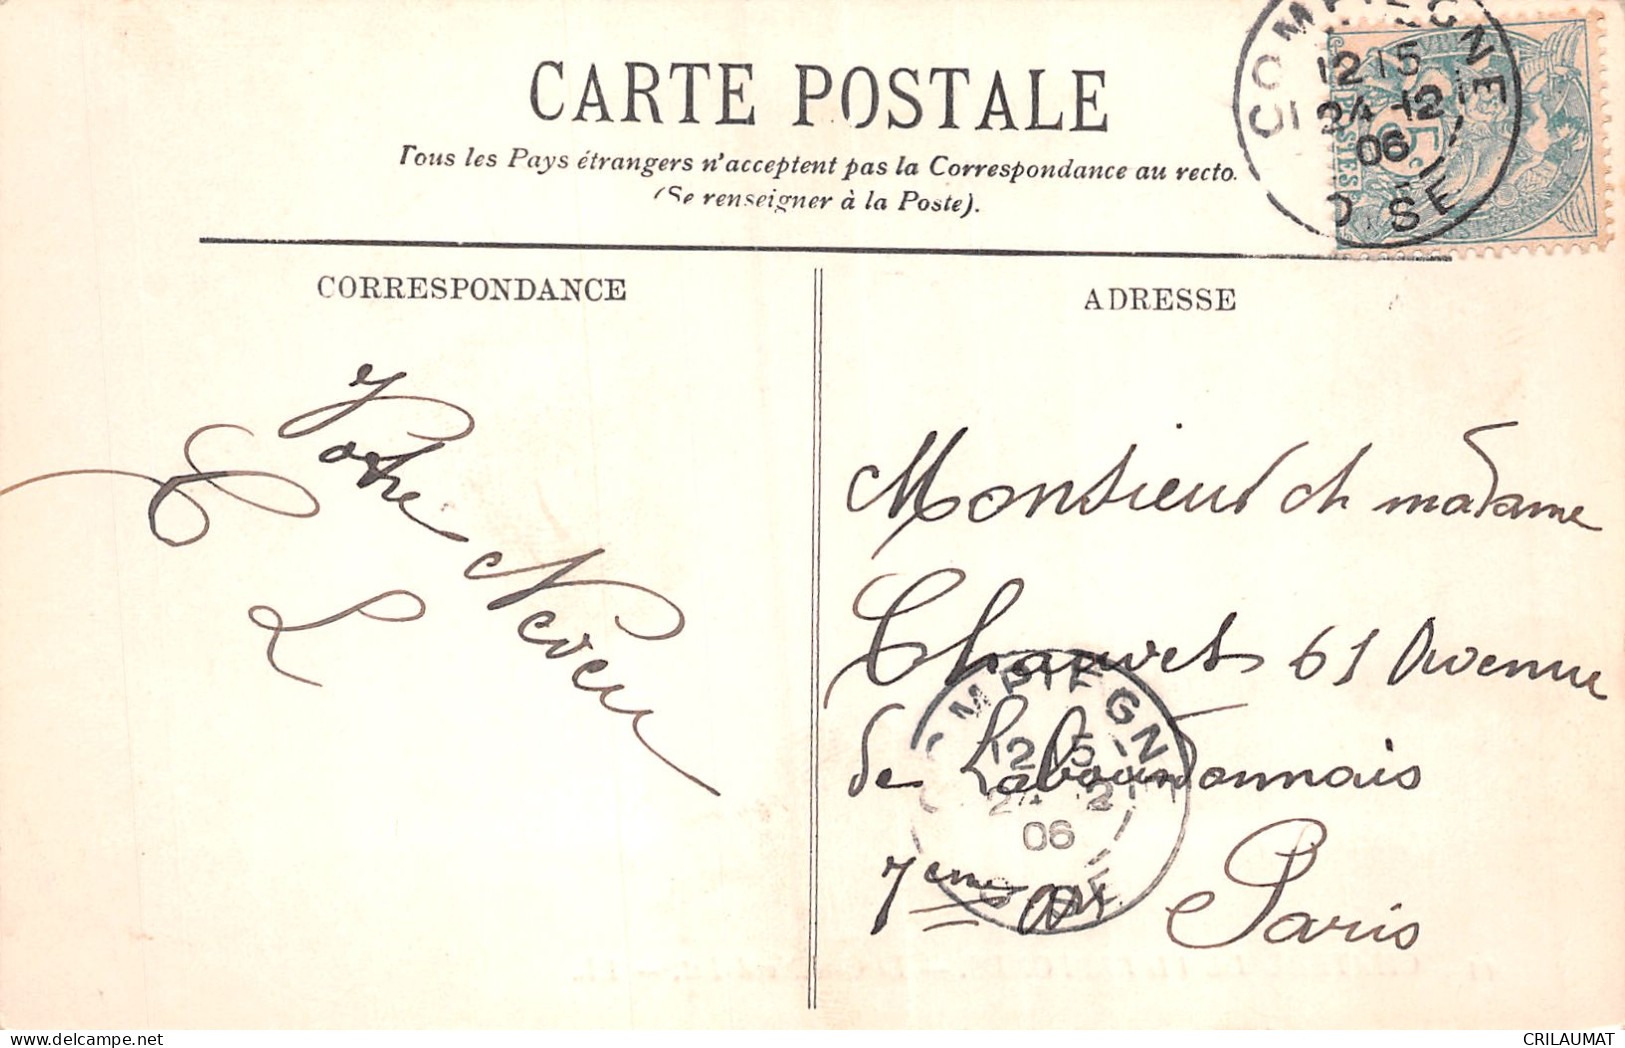 CARTE POSTALE
Tous les Pays étrangers n'acceptent pas la Correspondance au recto.
(Se renseigner à la Poste).
COMPIEGNE
12 15
24 -12
06
OISE
5 c
CORRESPONDANCE
ADRESSE
Votre
Neveu
L
Monsieur et madame
Chauvet 61 Avenue
de Labourdonnais
7eme Art
Paris
COMPIEGNE
12 15
24 12
06
OISE
CRILAUMAT